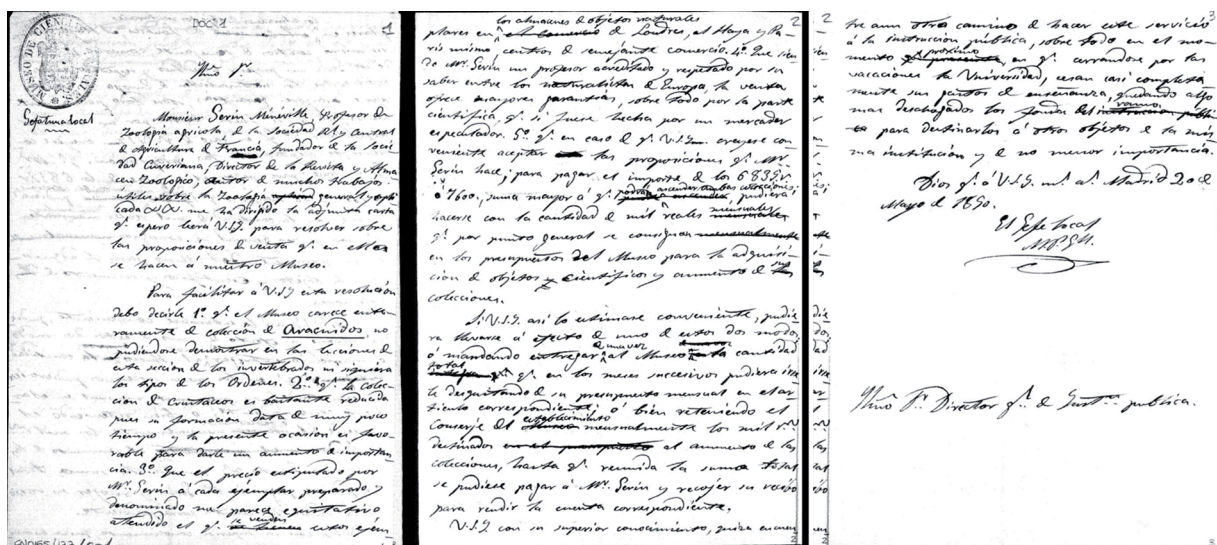 DOC 1
1
MUSEO DE CIENCIAS
Ylmo Sr.
Gefatura local
Monsieur Gerin Mineville, Profesor de
Zoologia agricola de la Sociedad R.l y Central
de Agricultura de Francia, fundador de la Socie-
dad Cuvieriana, Director de la Revista y Alma-
cen Zoologico, autor de muchos trabajos
utiles sobre la Zoologia general y apli-
cada me ha dirijido la adjunta carta
q.e espero leerá V.S.Y. para resolver sobre
las proposiciones de venta q.e en ella
se hacen á nuestro Museo.
Para facilitar á V.S.Y esta resolución
debo decirle 1.º q.e el Museo carece ente-
ramente de colección de Aracnidos no
pudiendose demostrar en las lecciones de
esta sección de los invertebrados ni siquiera
los tipos de los Ordenes. 2.º q.e la colec-
cion de Crustaceos es bastante reducida
pues su formación data de muy poco
tiempo y la presente ocasión es favo-
rable para darle un aumento de importan-
cia. 3.º Que el precio estipulado por
Mr. Gerin á cada ejemplar preparado y
denominado me parece equitativo
atendido el q.e se venden estos ejem-
2
los almacenes de objetos naturales
plares en el comercio de Londres, el Haya y Pa-
ris mismo centros de semejante comercio. 4.º Que sien-
do Mr. Gerin un profesor acreditado y respetado por su
saber entre los naturalistas de Europa, la venta
ofrece mayores garantias, sobre todo por la parte
cientifica, q.e si fuese hecha por un mercader
especulador. 5.º q.e en caso de q.e V.S.Y. creyese con-
veniente aceptar las proposiciones q.e Mr.
Gerin hace, para pagar el importe de los 6839 r.
ó 7600, suma mayor á q.e podrán ascender ambas colecciones, pudiera
hacerse con la cantidad de mil reales mensuales
q.e por punto general se consignan mensualmente
en los presupuestos del Museo para la adquisi-
ción de objetos cientificos y aumento de
colecciones.
Si V.S.Y. asi lo estimase conveniente, pudie-
ra llevarse á efecto de uno de estos dos modos,
ó mandando entregar al Museo de una vez la cantidad
total q.e en los meses succesivos pudiera irse-
le desquitando de su presupuesto mensual en el ar-
ticulo correspondiente ó bien reteniendo el
Conserje del establecimiento mensualmente los mil r.s
destinados en el presupuesto al aumento de las
colecciones, hasta q.e reunida la suma total
se pudiese pagar á Mr. Gerin y recojer su recibo
para rendir la cuenta correspondiente.
V.S.Y con su superior conocimiento, quiza encuen-
2
3
tre aun otro camino de hacer este servicio
á la instrucción pública, sobre todo en el mo-
mento proximo en q.e cerrandose por las
vacaciones la Universidad, cesan casi completa-
mente sus gastos de enseñanza, quedando algo
mas desahogados los fondos del ramo
para destinarlos á otros objetos de la mis-
ma institución y de no menor importancia.
Dios g.e á V.S.Y. m.s a.s Madrid 20 de
Mayo de 1850.
El Gefe local
M.P.G.
Ylmo Sr. Director g.l de Instr.on publica.